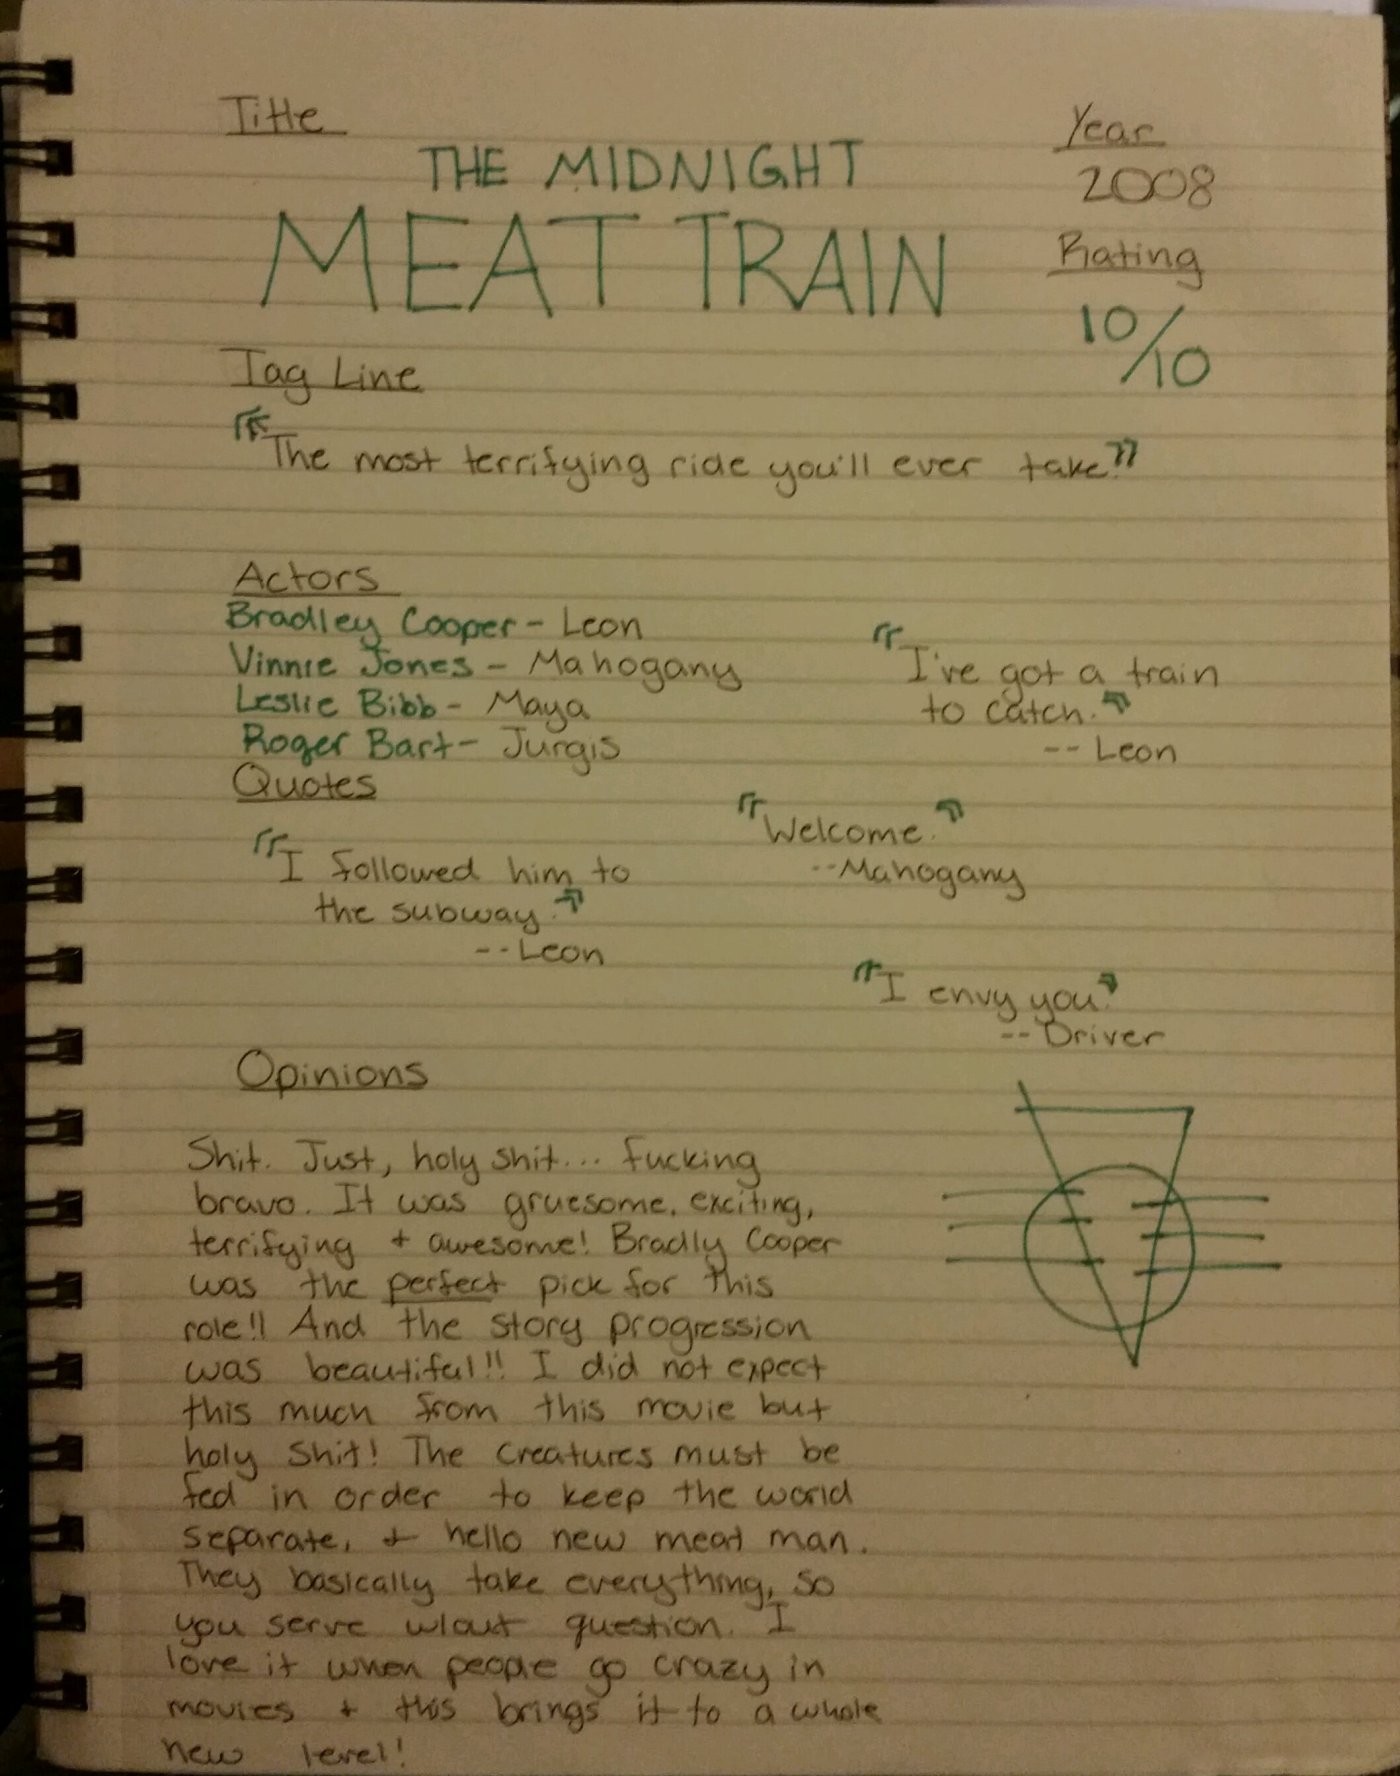 Title
THE MIDNIGHT
MEAT TRAIN
Year
2008
Rating
10/10
Tag Line
"The most terrifying ride you'll ever take."
Actors
Bradley Cooper - Leon
Vinnie Jones - Mahogany
Leslie Bibb - Maya
Roger Bart - Jurgis
"I've got a train
to catch."
-- Leon
Quotes
"Welcome."
--Mahogany
"I followed him to
the subway."
--Leon
"I envy you."
-- Driver
Opinions
Shit. Just, holy shit... fucking
bravo. It was gruesome, exciting,
terrifying + awesome! Bradly Cooper
was the perfect pick for this
role!! And the story progression
was beautiful!! I did not expect
this much from this movie but
holy shit! The creatures must be
fed in order to keep the world
separate, + hello new meat man.
They basically take everything, so
you serve w/out question. I
love it when people go crazy in
movies + this brings it to a whole
new level!